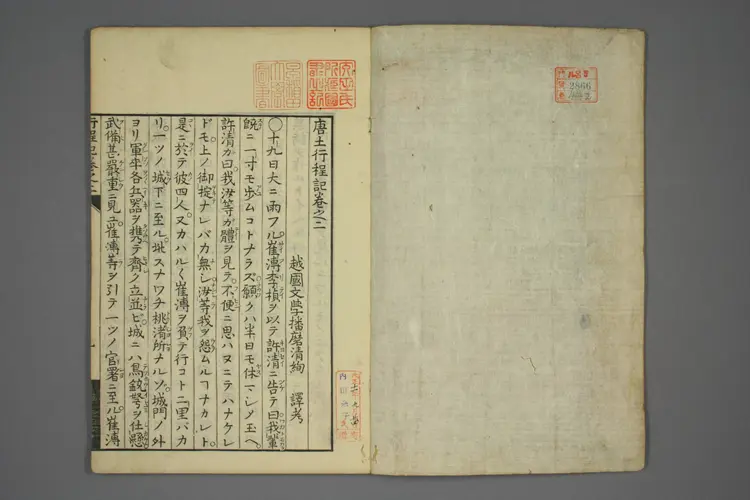 唐土行程記卷之二
越國文學播磨清絢 譯考
〇十九日大ニ雨フル崔溥李楨ヲ以テ許清ニ告テ曰我輩
既ニ一寸モ歩ムコトナラズ願クハ半日モ休マシメ玉ヘ
許清カ曰我汝等カ體ヲ見テ不便ニ思ハヌニテハナケレ
ドモ上ノ御掟ナレバカ無シ汝等我ヲ怨ムルヿナカレト
是ニ於テ彼四人又カハル〱崔溥ヲ負テ行コト二里バカ
リ一ツノ城下ニ至ル城スナワチ桃渚所ナルソ城門ノ外
ヨリ軍卒各兵器ヲ携テ齊ク立並ヒ城ニハ鳥銃弩ヲ仕懸
武備甚嚴重ニ見ユ崔溥等ヲ引テ一ツノ官署ニ至ル崔溥
行程記卷之二
2866
2